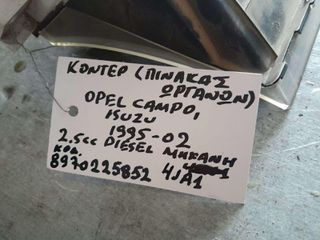 ΚΟΝΤΕΡ (ΠΙΝΑΚΑΣ
ΟΡΓΑΝΩΝ)
OPEL CAMPO,
ISUZU
1995-02
2.5cc DIESEL ΜΗΚΑΝΗ
ΚΩΔ. 4JA1
8970225852